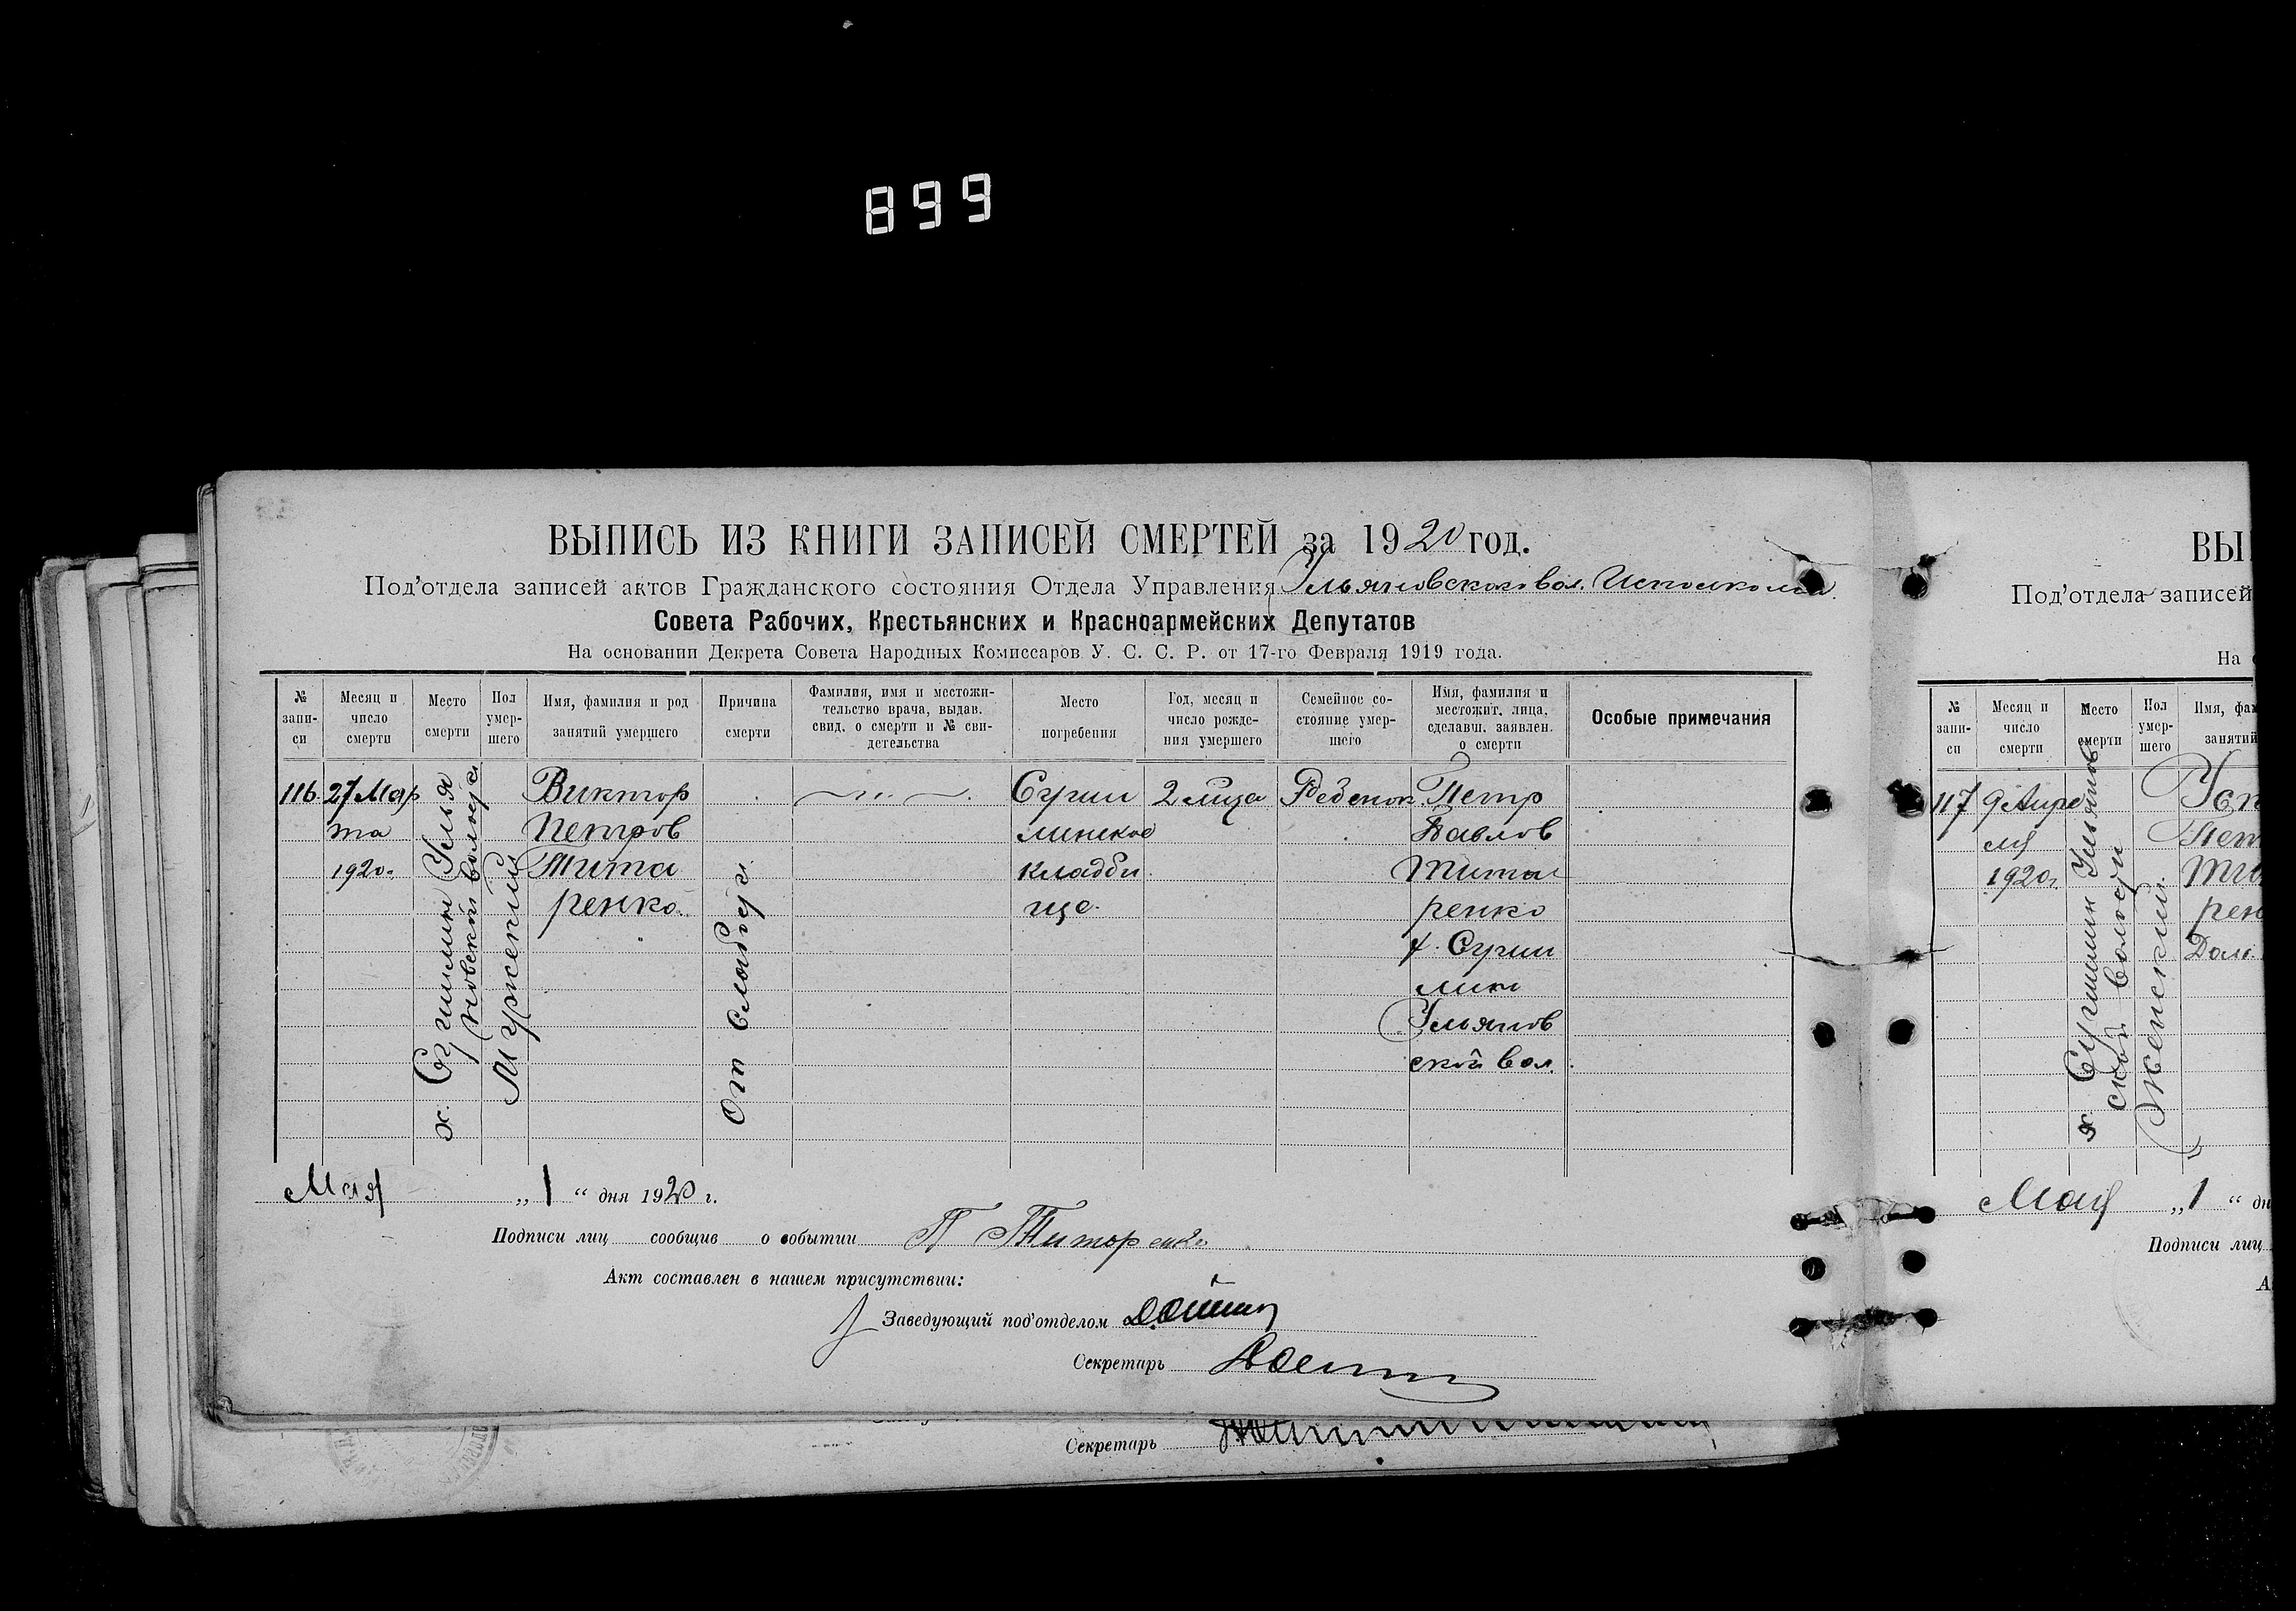 899
ВЫПИСЬ ИЗ КНИГИ ЗАПИСЕЙ СМЕРТЕЙ за 1920 год.
Под'отдела записей актов Гражданского состояния Отдела Управления Ульяновского вол. Исполкома.
Совета Рабочих, Крестьянских и Красноармейских Депутатов
На основании Декрета Совета Народных Комиссаров У. С. С. Р. от 17-го Февраля 1919 года.
№ запи-си
Месяц и число смерти
Место смерти
Пол умер-шего
Имя, фамилия и род занятий умершего
Причина смерти
Фамилия, имя и местожи-тельство врача, выдав. свид. о смерти и № сви-детельства
Место погребения
Год, месяц и число рожде-ния умершего
Семейное со-стояние умер-шего
Имя, фамилия и местожит. лица, сделавш. заявлен. о смерти
Особые примечания
116.
27 Мар
та
1920.
х.
Улья
новской
Мужский
Виктор
Петров
Тита
ренко.
От
2 м-ца
Ребенок
линское
кладби
ще.
Петр
Павлов
Тита
ренко
Ульянов
ской вол.
Мая „ 1 “ дня 1920 г.
Подписи лиц сообщив о событии П
Акт составлен в нашем присутствии:
Заведующий под'отделом
Секретарь
Секретарь
ВЫ
Под'отдела записей
На
№ запи-си
Месяц и число смерти
Место смерти
Пол умер-шего
Имя, фа
занятий
117
9 Апре
ля
1920.
х.
Ульянов
ской
Женский
Тита
рен
Мая „ 1 “ дн
Подписи лиц
А